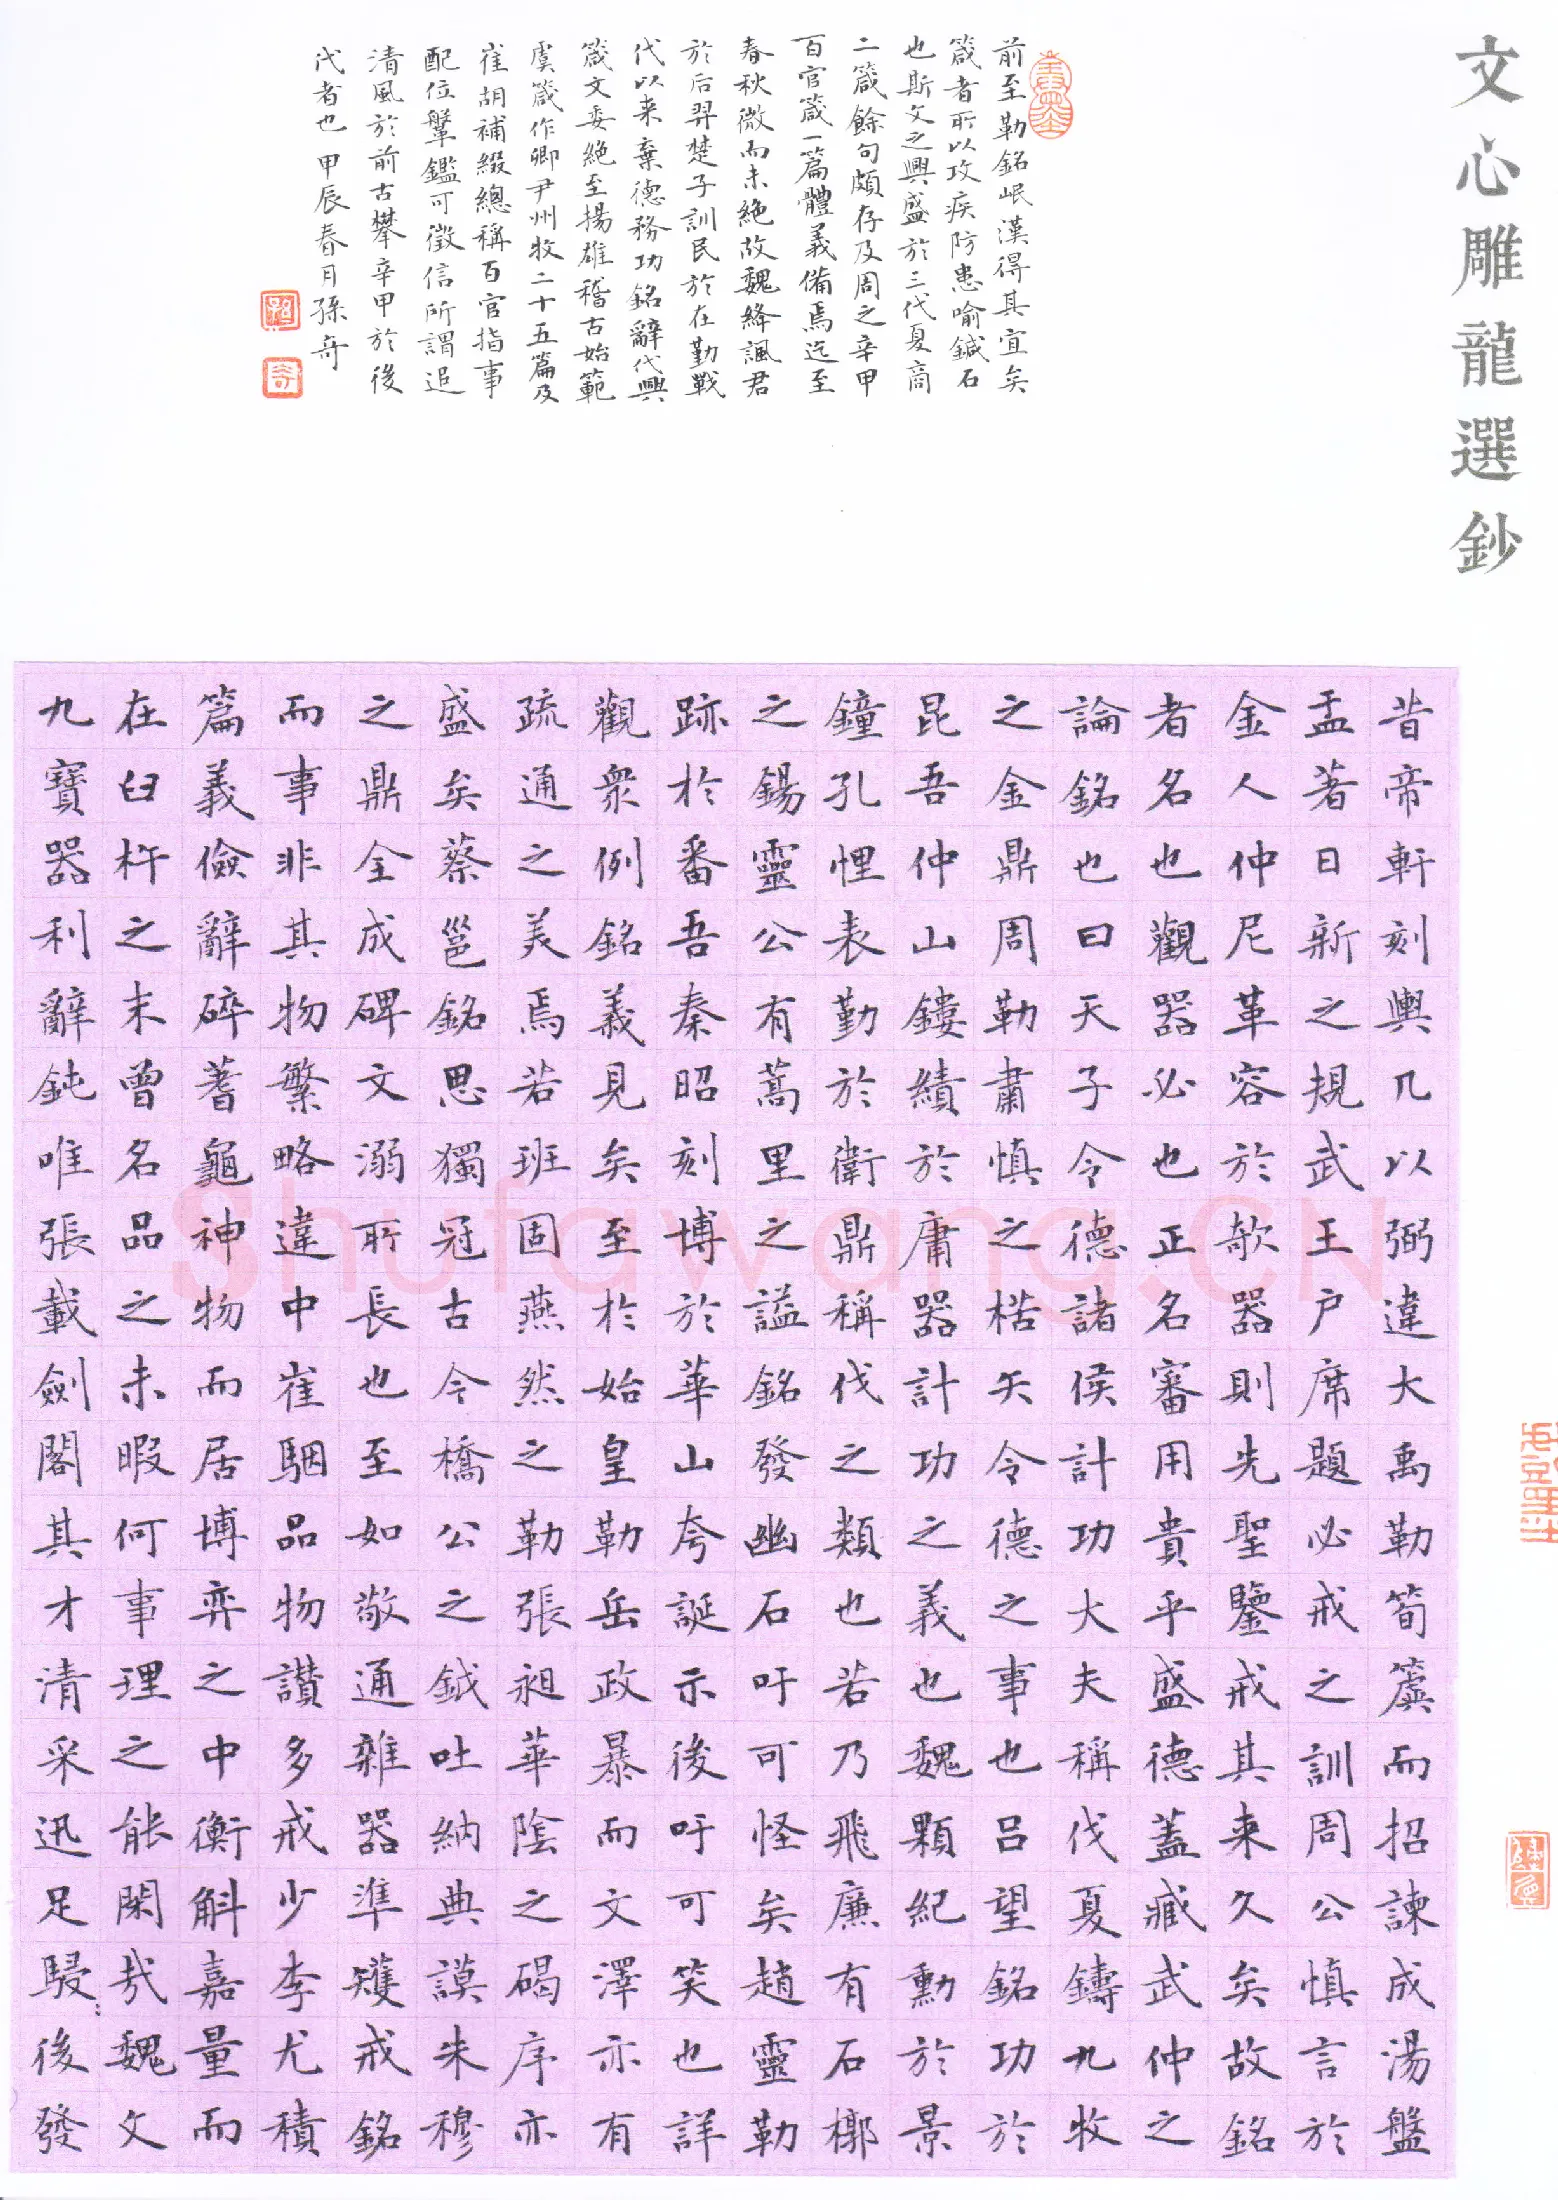 文心雕龍選鈔
昔帝軒刻輿几以弼違大禹勒筍簴而招諫成湯盤
盂著日新之規武王户席題必戒之訓周公慎言於
金人仲尼革容於欹器則先聖鑒戒其来久矣故銘
者名也觀器必也正名審用貴乎盛德蓋臧武仲之
論銘也曰天子令德諸侯計功大夫稱伐夏鑄九牧
之金鼎周勒肅慎之楛矢令德之事也吕望銘功於
昆吾仲山鏤績於庸器計功之義也魏顆紀勳於景
鐘孔悝表勤於衛鼎稱伐之類也若乃飛廉有石槨
之錫靈公有蒿里之謚銘發幽石吁可怪矣趙靈勒
跡於番吾秦昭刻博於華山夸誕示後吁可笑也詳
觀衆例銘義見矣至於始皇勒岳政暴而文澤亦有
疏通之美焉若班固燕然之勒張昶華陰之碣序亦
盛矣蔡邕銘思獨冠古今橋公之鉞吐納典謨朱穆
之鼎全成碑文溺所長也至如敬通雜器準矱戒銘
而事非其物繁略違中崔駰品物讚多戒少李尤積
篇義儉辭碎蓍龜神物而居博弈之中衡斛嘉量而
在臼杵之末曾名品之未暇何事理之能閑哉魏文
九寶器利辭鈍唯張載劍閣其才清采迅足駸:後發
前至勒銘岷漢得其宜矣
箴者所以攻疾防患喻鍼石
也斯文之興盛於三代夏商
二箴餘句頗存及周之辛甲
百官箴一篇體義備焉迄至
春秋微而未絶故魏絳諷君
於后羿楚子訓民於在勤戰
代以来棄德務功銘辭代興
箴文委絶至揚雄稽古始範
虞箴作卿尹州牧二十五篇及
崔胡補綴總稱百官指事
配位鞶鑑可徵信所謂追
清風於前古攀辛甲於後
代者也甲辰春月孫奇
Shufawang.CN